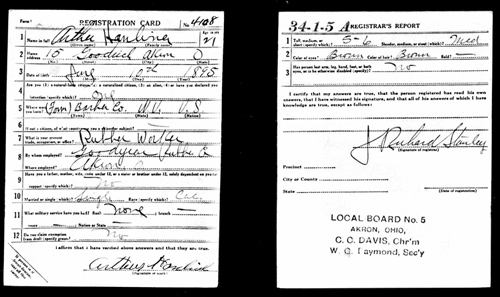 Form 1 REGISTRATION CARD No. 4108
1 Name in full Arthur Age in yrs. 21
(Given name) (Family name)
2 Home address 15 Goodrich Akron O
3 Date of birth June 1895
(Month) (Day) (Year)
4 Are you (1) a natural-born citizen, (2) a naturalized citizen, (3) an alien, (4) or have you declared your
intention (specify which)?
5 Where were you born? Co. W. V. U. S
6 If not a citizen, of what country are you a citizen or subject?
7 What is your present trade, occupation, or office? Rubber Worker
8 By whom employed? Goodyear Rubber Co
Where employed? Akron O
9 Have you a father, mother, wife, child under 12, or a sister or brother under 12, solely dependent on you for
support (specify which)? No
10 Married or single (which)? Single Race (specify which)?
11 What military service have you had? Rank None ; branch
years Nation or State
12 Do you claim exemption from draft (specify grounds)? No
I affirm that I have verified above answers and that they are true.
Arthur
34-1-5 A REGISTRAR'S REPORT
1 Tall, medium, or short (specify which)? 5-6 Slender, medium, or stout (which)? Med
2 Color of eyes? Brown Color of hair? Brown Bald?
3 Has person lost arm, leg, hand, foot, or both
eyes, or is he otherwise disabled (specify)? No
I certify that my answers are true, that the person registered has read his own
answers, that I have witnessed his signature, and that all of his answers of which I have
knowledge are true, except as follows:
J Richard Stanley
(Signature of registrar)
Precinct
City or County
State
(Date of registration)
LOCAL BOARD No. 5
AKRON, OHIO,
C. C. DAVIS, Chr'm
W. C. Laymond, Sec'y